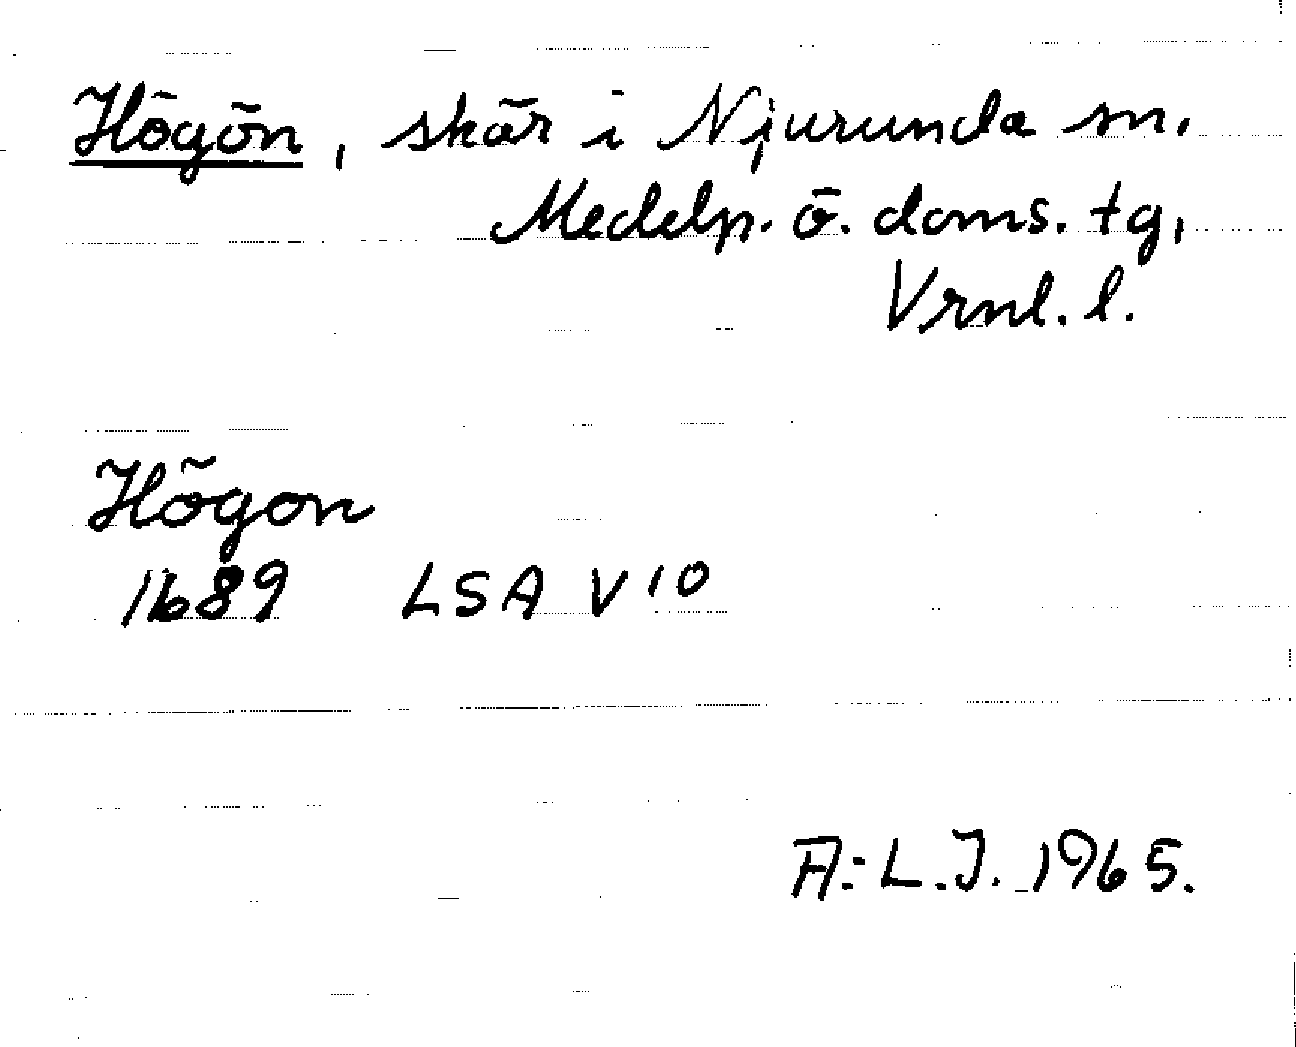 Högön, skär i Njurunda sn,
Medelp. ö. doms. tg,
Vrnl. l.
Högon
1689 LSA V 10
A:L.J. 1965.